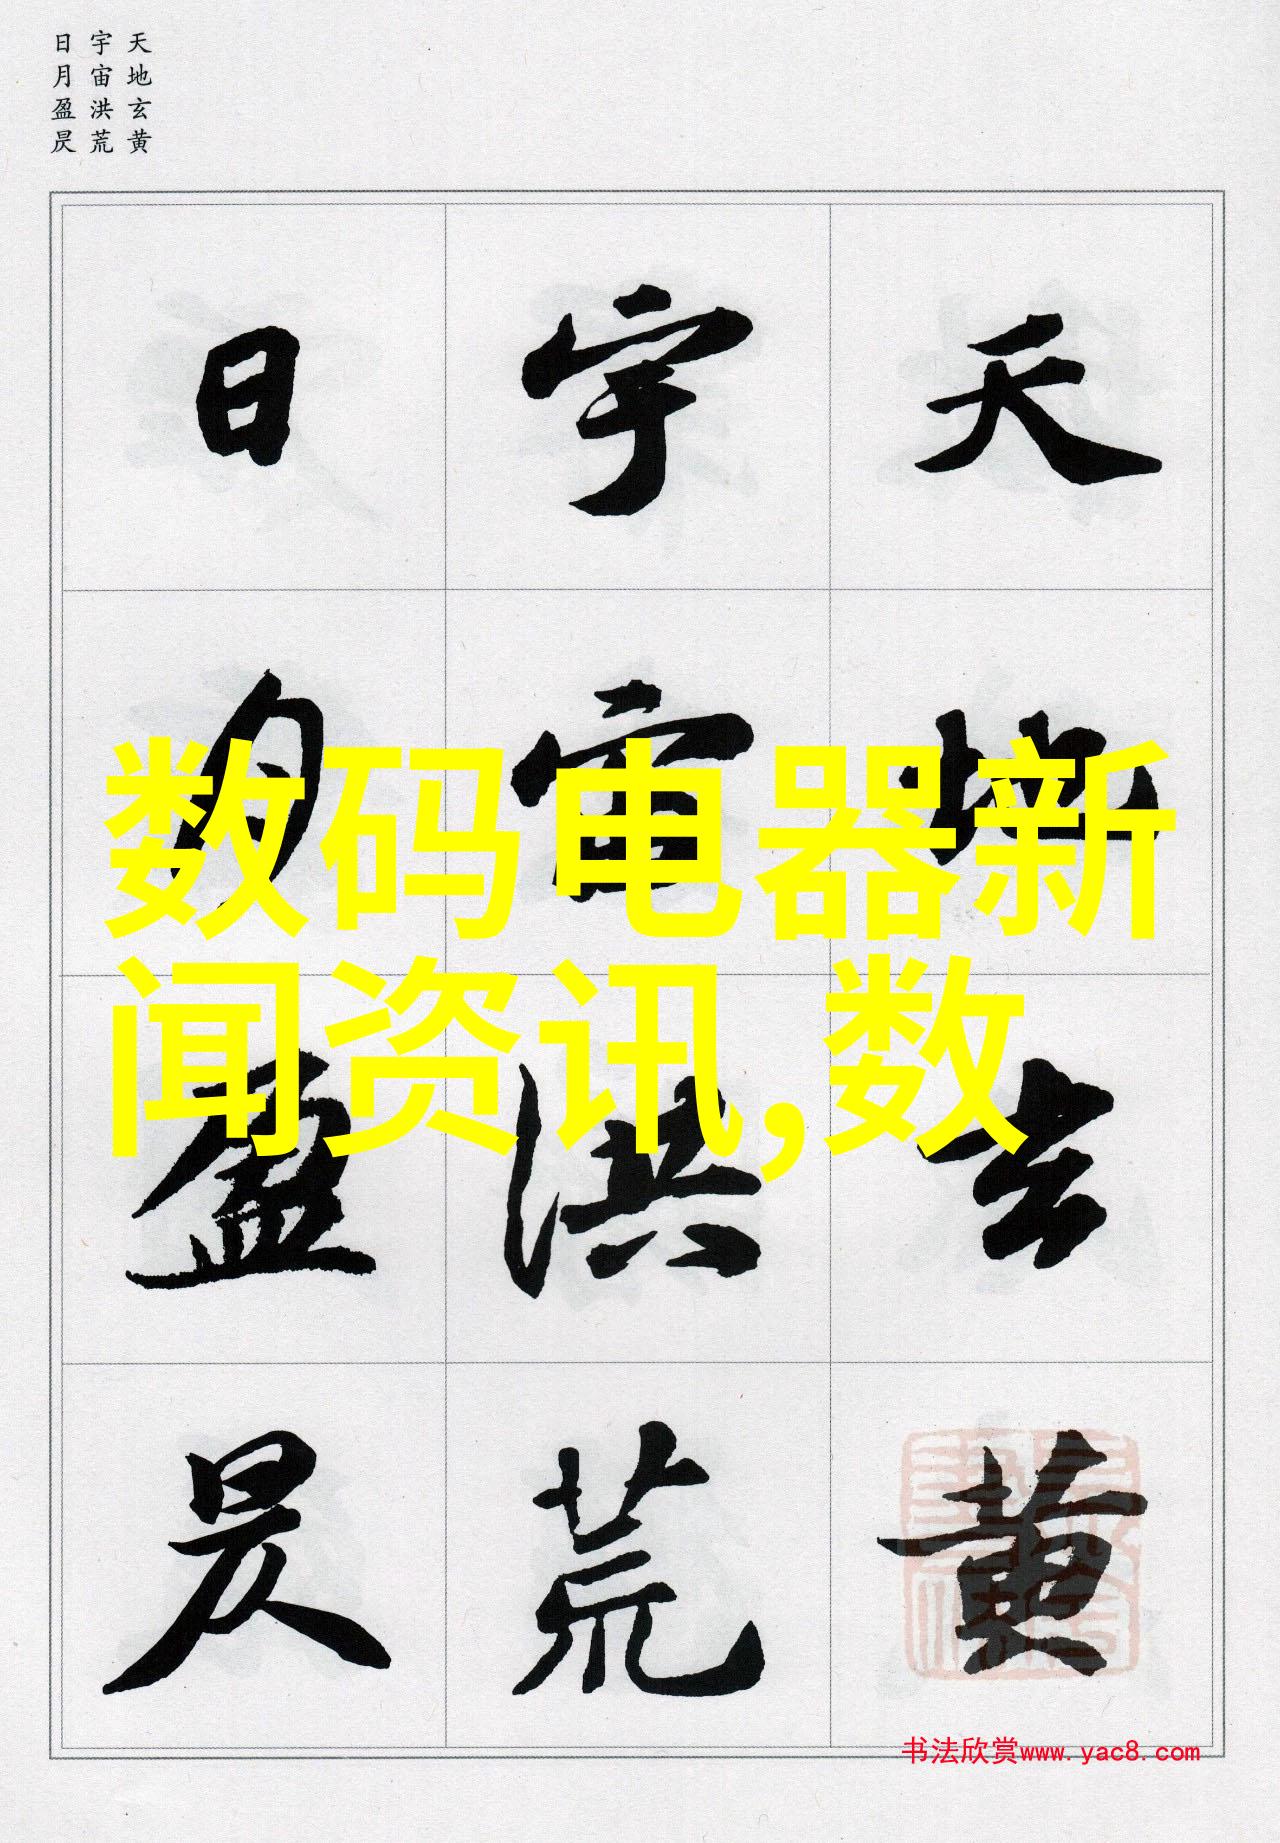 天地玄黄
宇宙洪荒
日月盈昃
天地玄黄
宇宙洪荒
日月盈昃
数码电器新
闻资讯,数
书法欣赏www.yac8.com